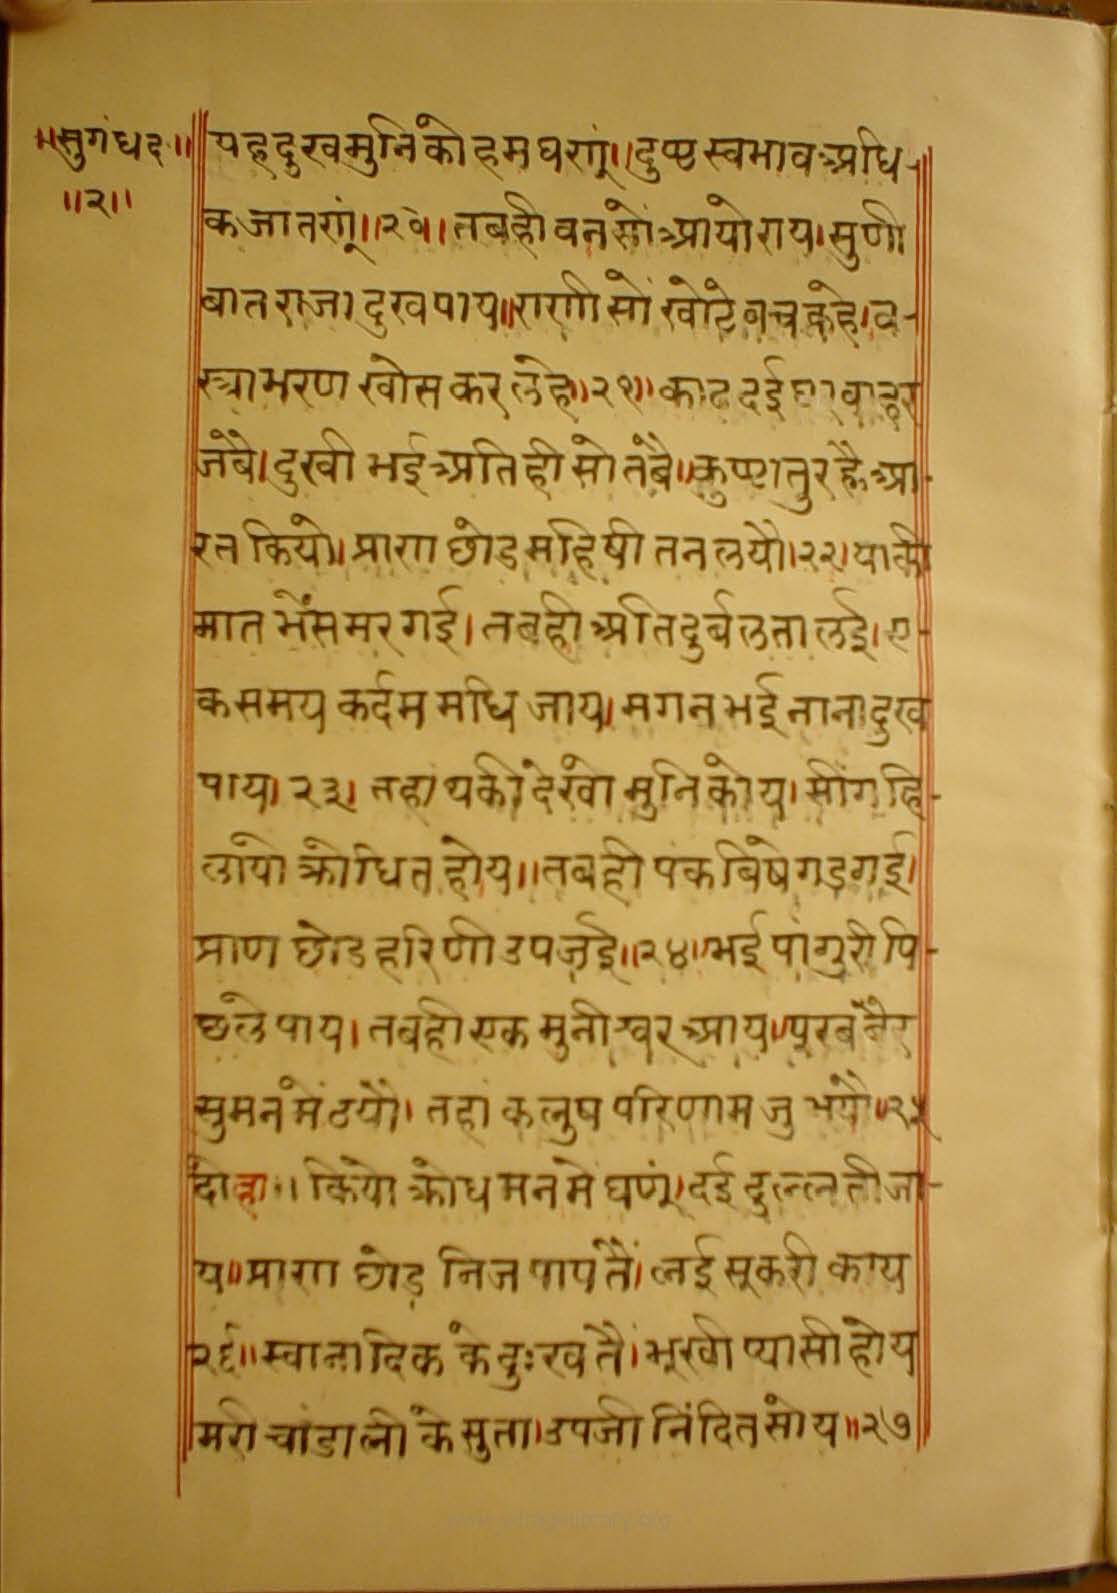 ॥सुगंधद॥
॥२॥
पहदुखमुनिकोहमघरणूं॥दुष्टस्वभावअधि-
कजातणूं॥२०॥तबहीवनसोंआयोराय।सुणी
बातराजादुखपाय॥राणीसोंखोटेबचकहे।व-
स्त्राभरणखोसकरलहे॥२१॥काढदई
जबै।दुखीभईअतिहीसोतबै॥कुष्टातुरह्वैआ-
रतकियो॥प्राणछोडमहिषीतनलयौ।२२।याकी
मातभैंसमरगई।तबहीअतिदुर्बलतालई।ए-
कसमयकर्दममधिजाय।मगनभईनानादुख
पाय।२३।तहांथकीदेखोमुनिकोय।सींगहि-
लायोक्रोधितहोय॥तबहीपंकबिषेगडगई।
प्राणछोडहरिणीउपजई॥२४॥भईपांगुरीपि-
छलेपाय।तबहीएकमुनीश्वरआय।पूरबबैर
सुमनमेंठयौ।तहांकलुषपरिणामजुभयौ॥२५
दोहा॥कियोक्रोधमनमेघणूं।दईदुलत्तीजा-
य॥प्राणछोडनिजपापतैं।लईसूकरीकाय
२६॥स्वानादिककेदुःखतैं।भूखीप्यासीहोय
मरीचांडालीकेसुता।उपजीनिंदितसोय॥२७